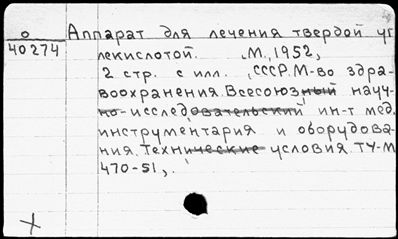 о Аппарат для лечения твердой уг
40274 лекислотой. М., 1952,
2 стр. с илл. , СССР. М-во здра-
воохранения. Всесоюзный науч-
но-исследовательский ин-т мед.
инструментария и оборудова-
ния. Технические условия ТУ-М
470-51,.